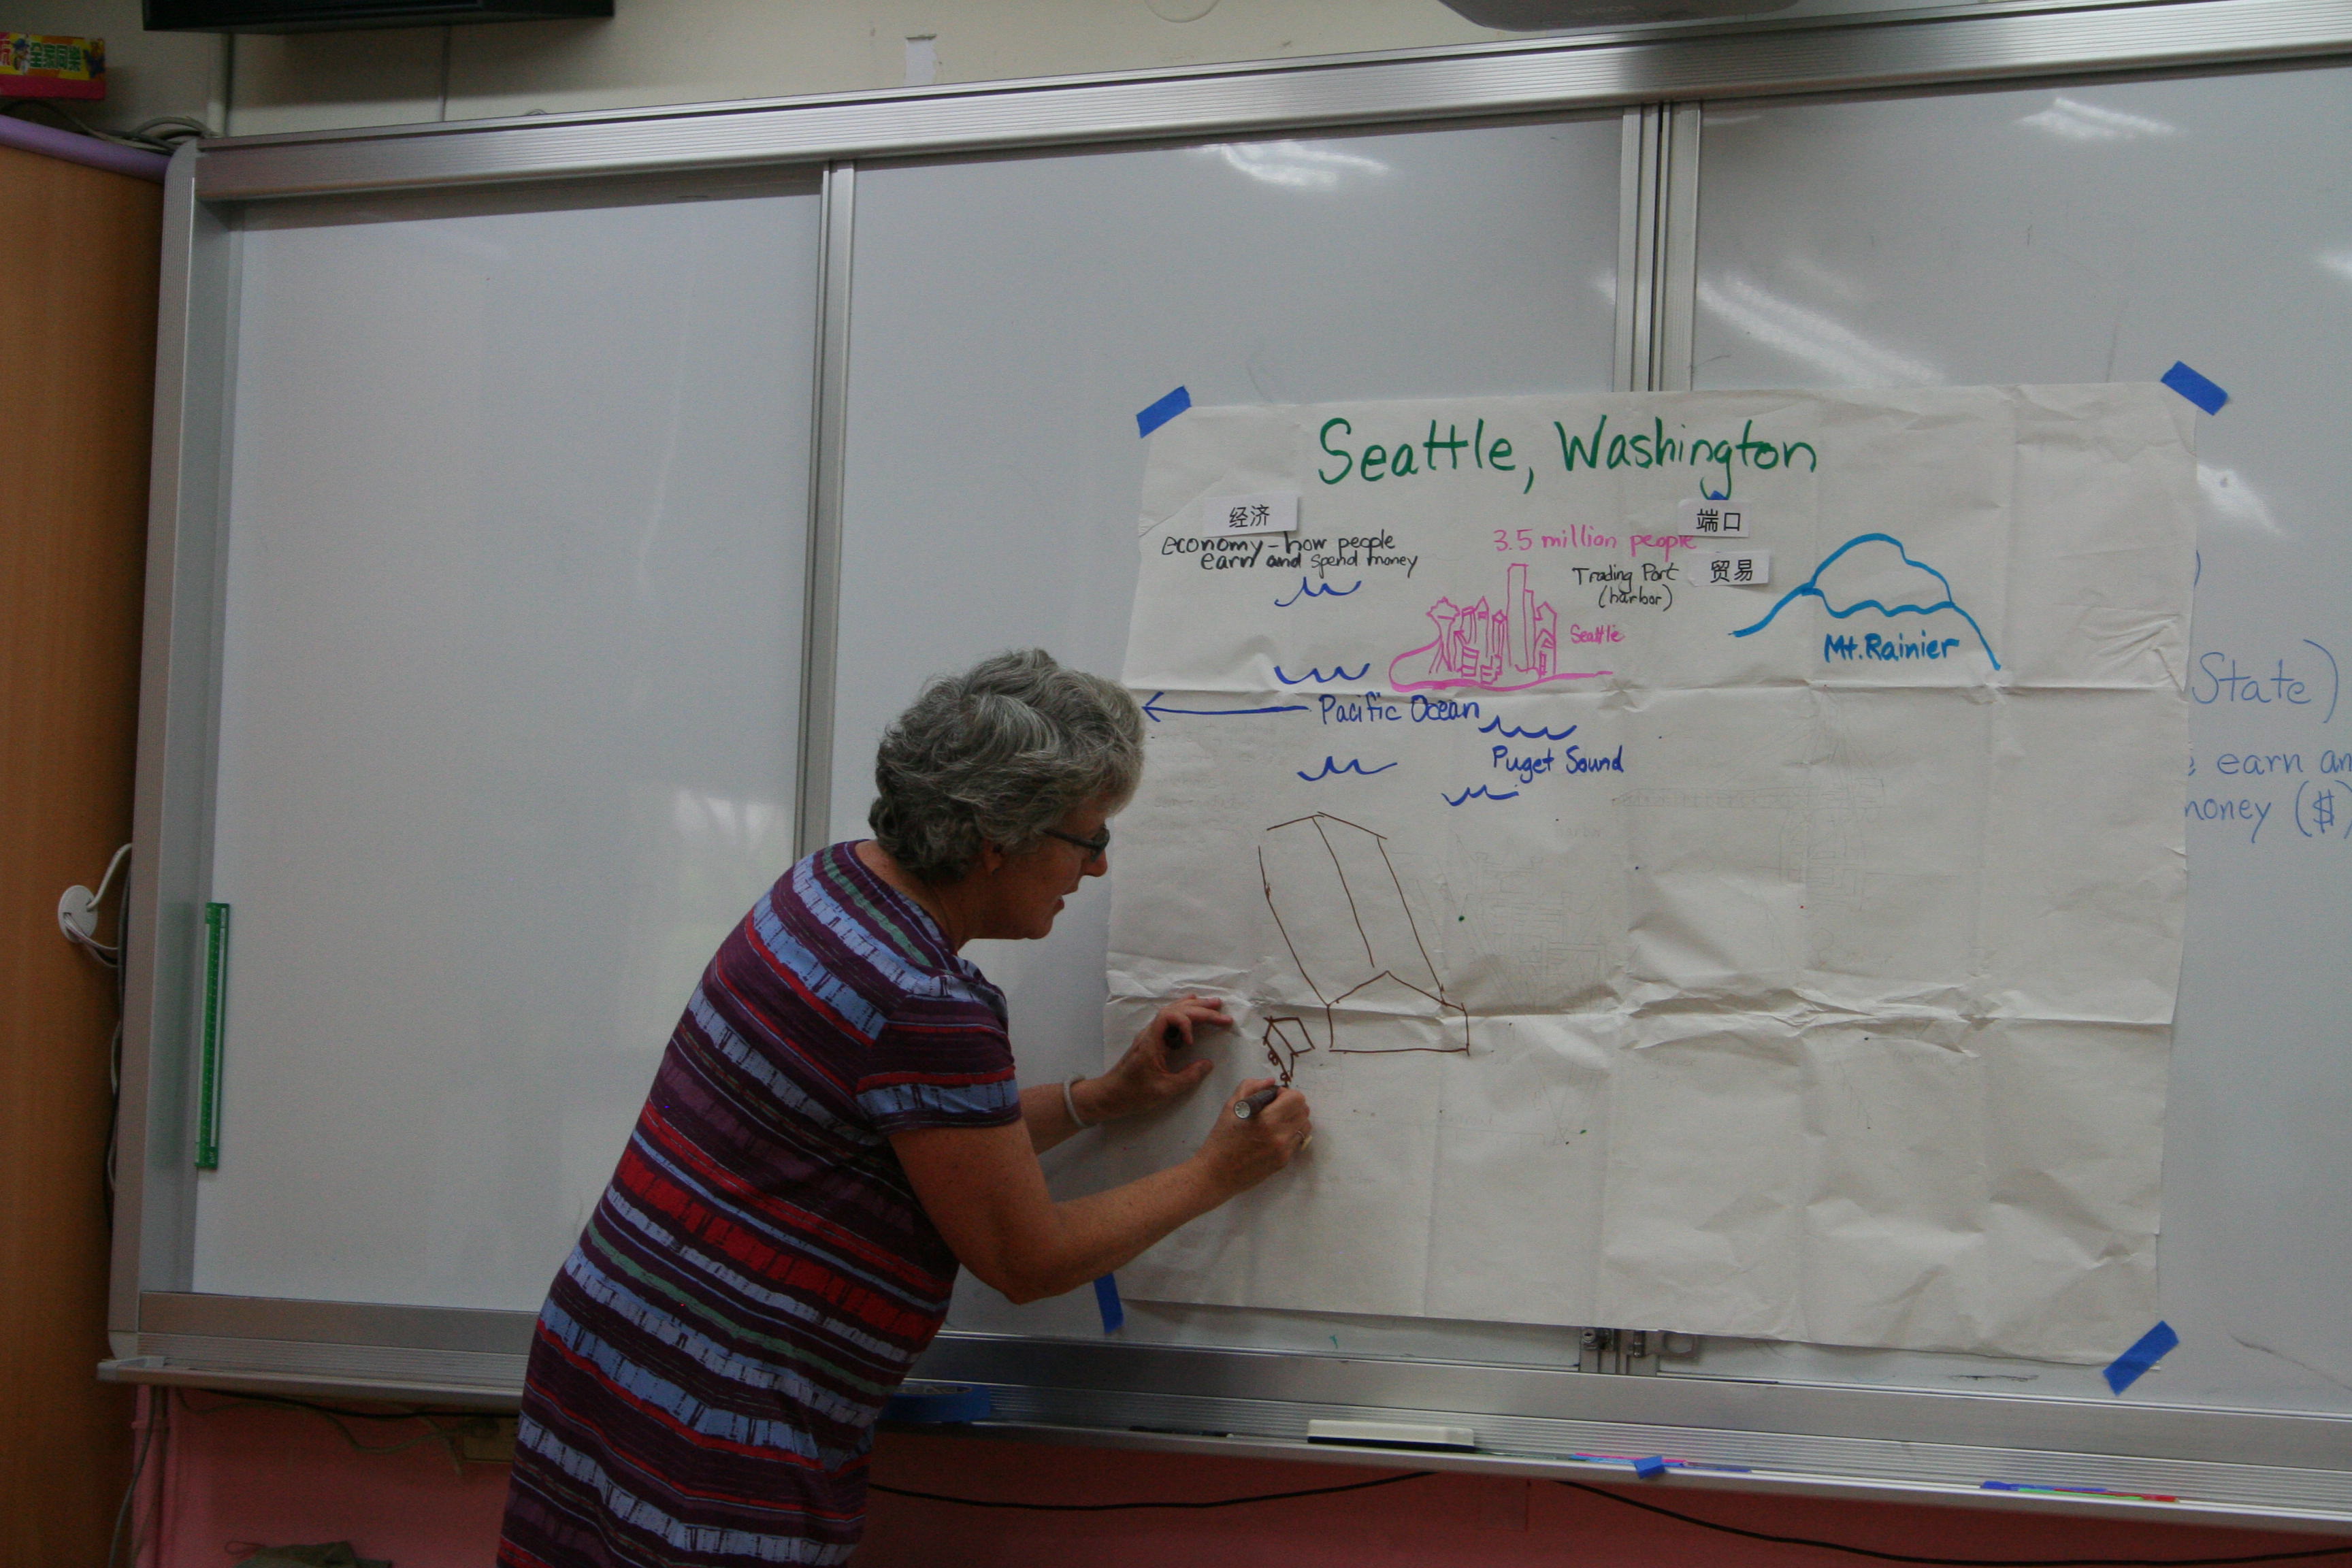 全家同樂
Seattle, Washington
经济
economy - how people
earn and spend money
3.5 million people
端口
Trading Port
(harbor)
贸易
Seattle
Mt. Rainier
Pacific Ocean
Puget Sound
State)
earn an
money ($)